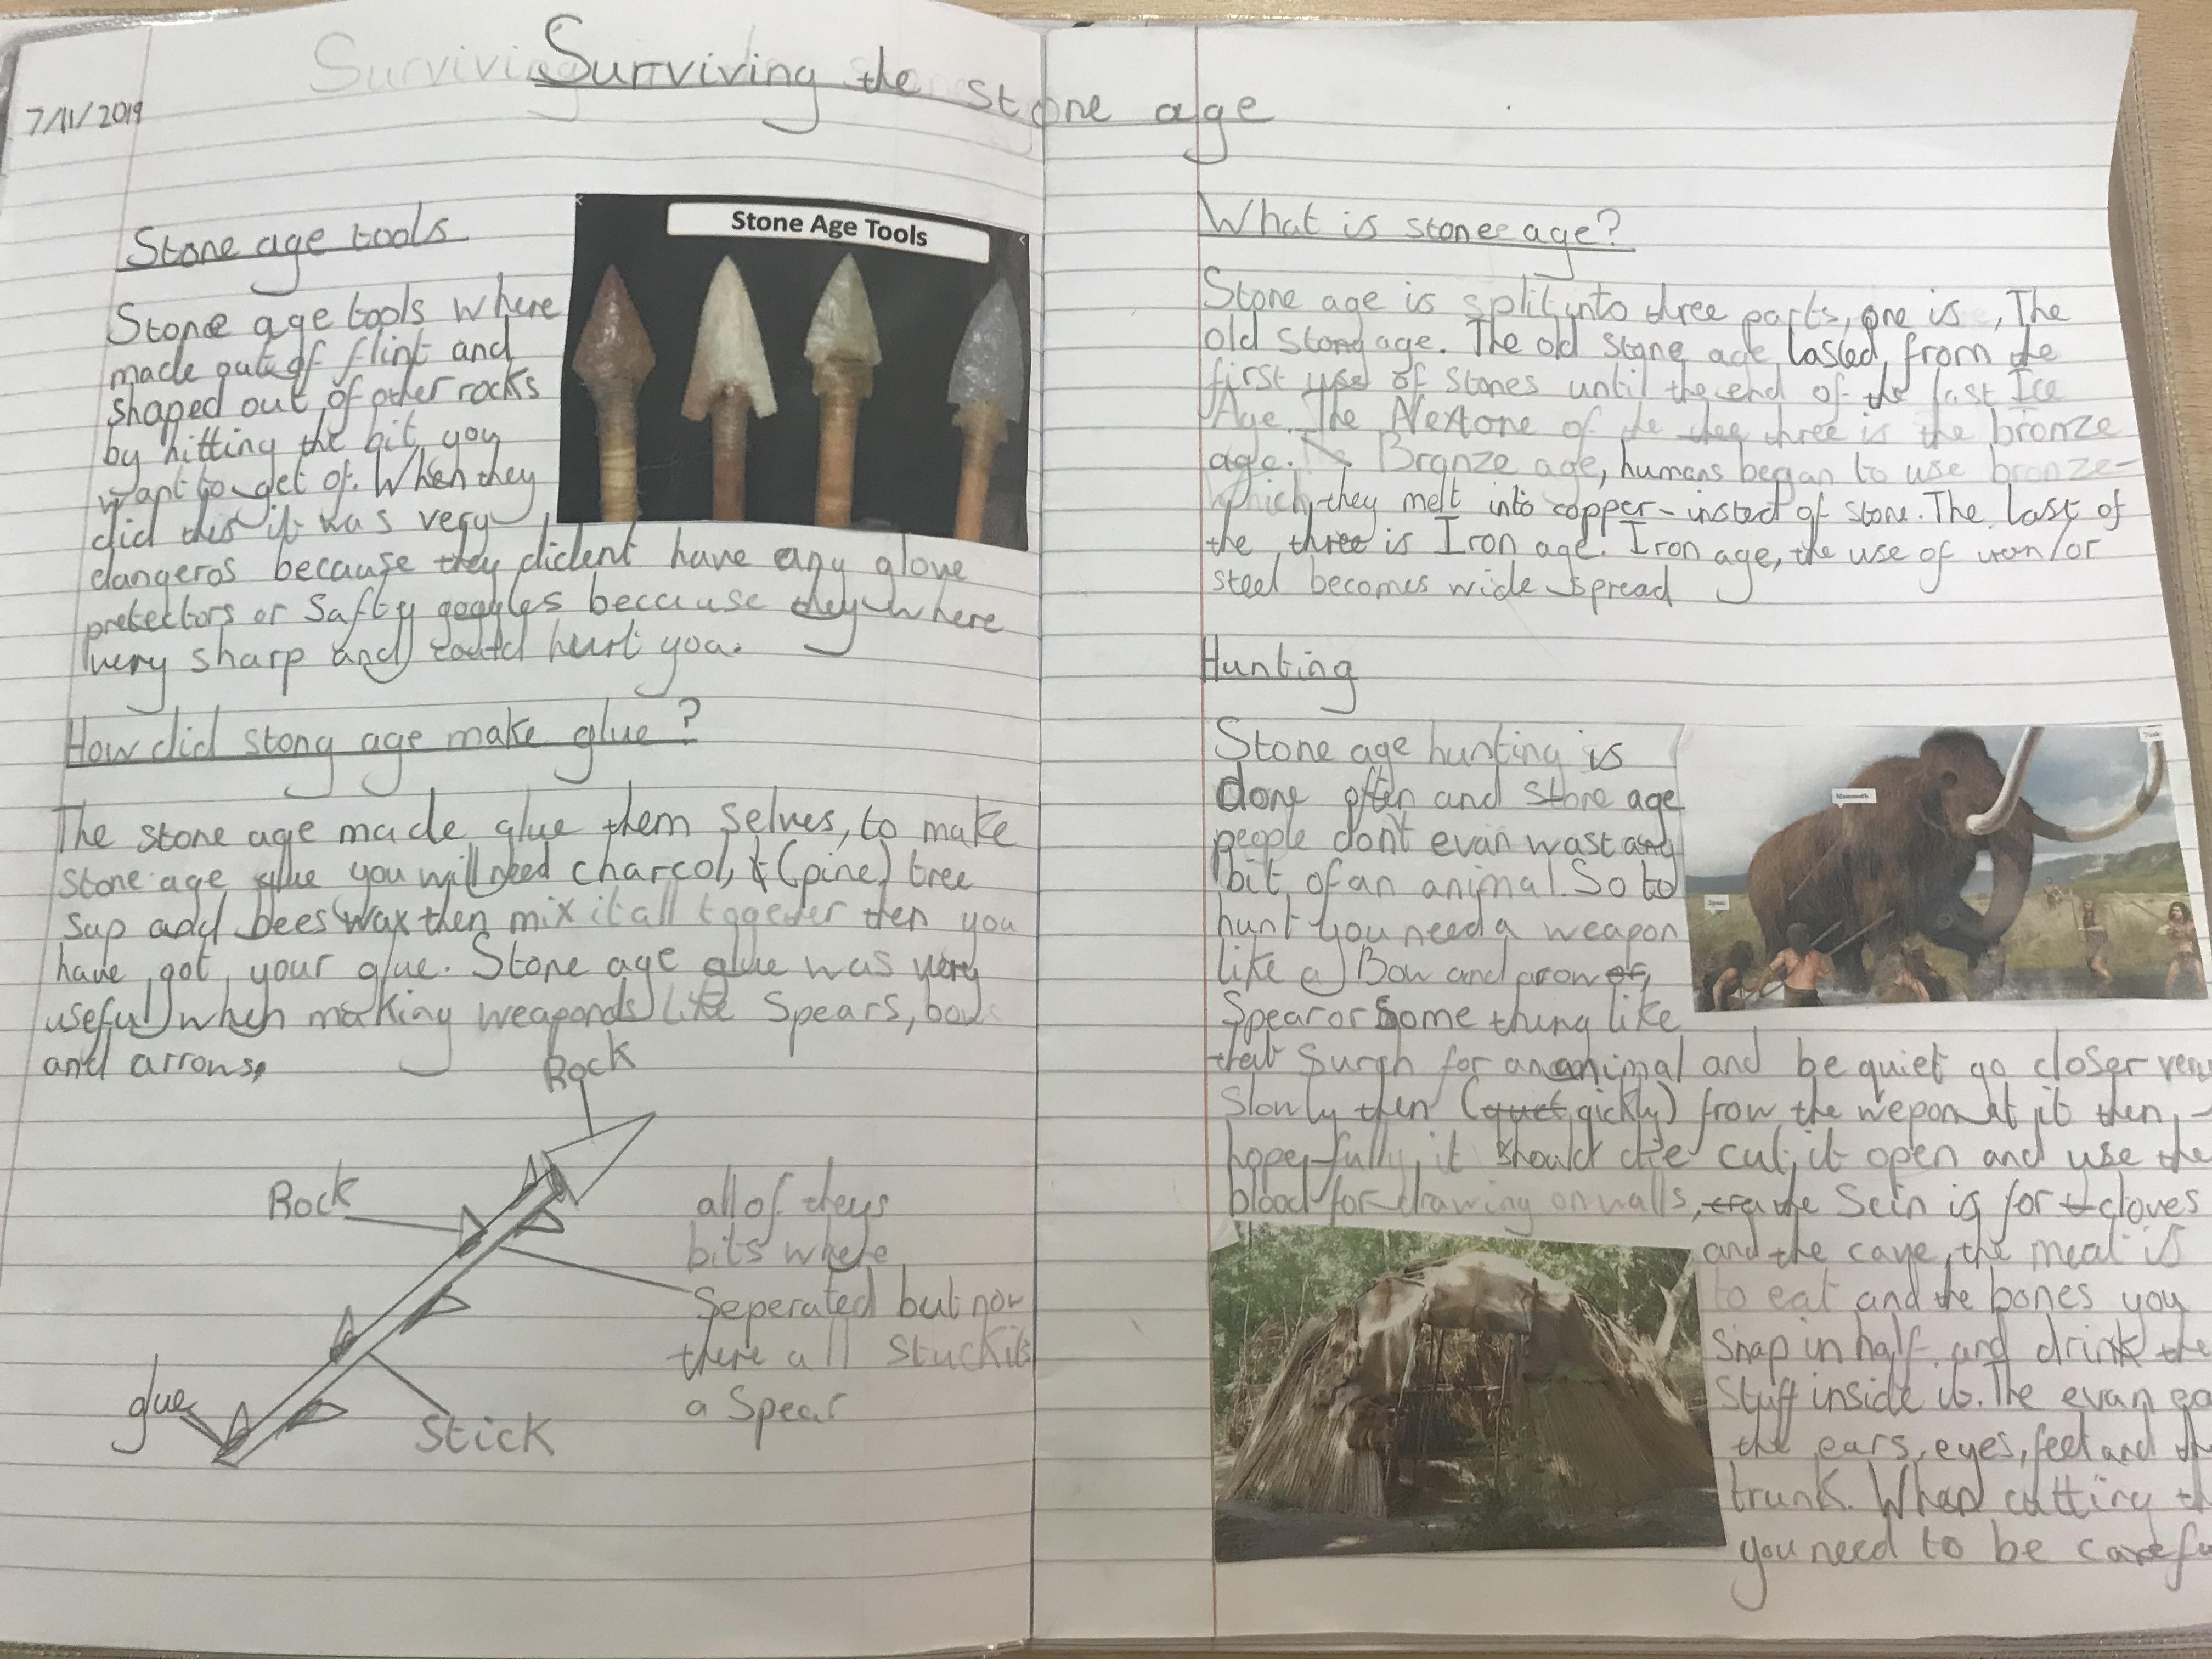 Surviving the stone age
7/11/2019
Stone age tools
Stone Age Tools
Stone age tools where
made out of flint and
shaped out of other rocks
by hitting the bit you
want to get of. When they
did this it was very
dangeros because they dident have any glove
pretectors or Safty goggles because they where
very sharp and could hurt you.
How did stong age make glue?
The stone age made glue them selves, to make
stone age glue you will need charcol, (pine) tree
sap and bees wax then mix it all together then you
have got your glue. Stone age glue was very
useful when making weaponds like Spears, bows
and arrows.
Rock
Rock
all of theys
bits where
Seperated but now
there all stuck its
a Spear
glue
Stick
What is stone age?
Stone age is split into three parts, one is, The
old Stong age. The old stone age lasted from the
first use of stones until the end of the last Ice
Age. The Next one of the three is the bronze
age. Bronze age, humans began to use bronze-
which they melt into copper - insted of stone. The last of
the three is Iron age. Iron age, the use of iron/or
steel becomes wide spread
Hunting
Stone age hunting is
done often and stone age
people don't evan wast any
bit of an animal. So to
hunt you need a weapon
like a Bow and arow,
Spear or Some thing like
that Surch for an animal and be quiet go closer very
Slowly then (qickly) frow the wepon at it then
hopefully it should die cut it open and use the
blood for drawing on walls, the Scin is for cloves
and the cave, the meat is
to eat and the bones you
Snap in half and drink the
Stuff inside it. The evan ea
the ears, eyes, feet and the
trunk. When cutting th
you need to be carefu
Mammoth
Spear
Tusk